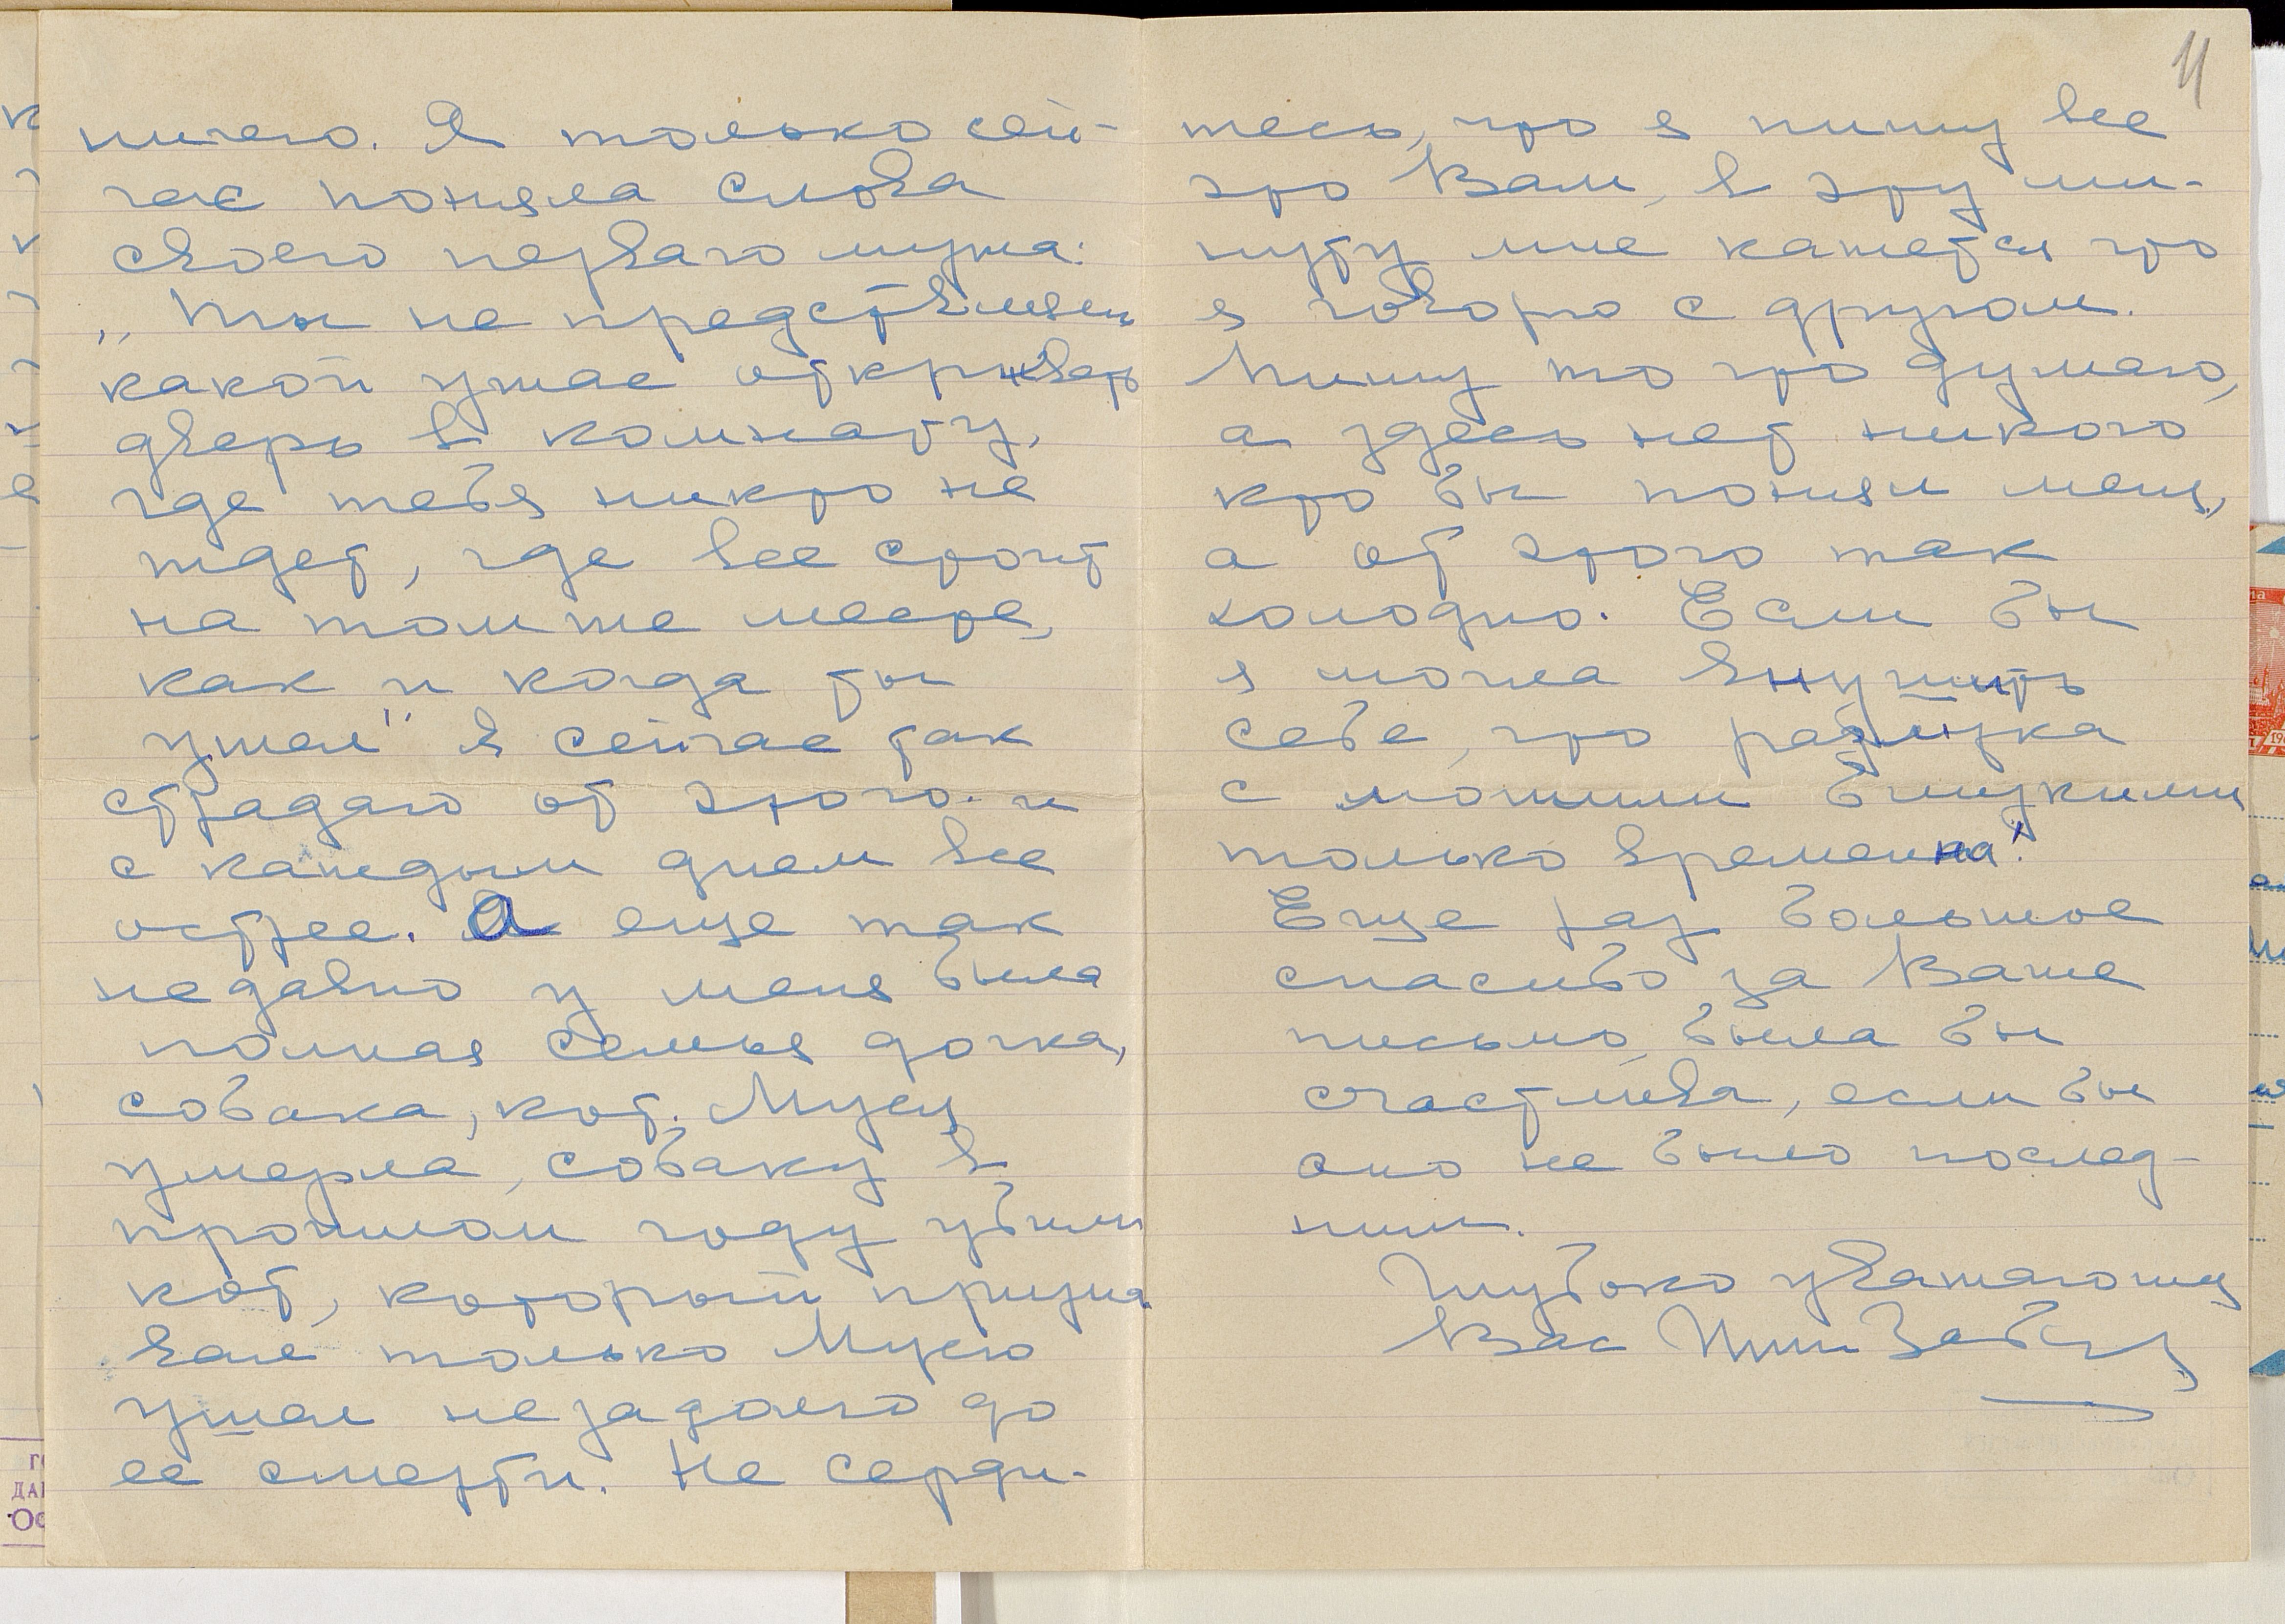 ничего. Я только сей-
час поняла слова
своего первого мужа:
„Ты не представляешь
какой ужас открывать
дверь в комнату,
где тебя никто не
ждет, где все стоит
на том же месте,
как и когда ты
ушел" Я сейчас так
страдаю от этого и
с каждым днем все
острее. А еще так
недавно у меня была
полная семья дочка,
собака, кот. Муся
умерла, собаку в
прошлом году убили
кот, который призна-
вал только Мусю
ушел незадолго до
ее смерти. Не серди-
11
тесь, что я пишу все
это Вам, в эту ми-
нуту мне кажется что
я говорю с другом.
Пишу то что думаю,
а здесь нет никого
кто бы понял меня,
а от этого так
холодно. Если бы
я могла внушить
себе, что разлука
с моими близкими
только временна!
Еще раз большое
спасибо за Ваше
письмо, была бы
счастлива, если бы
оно не было послед-
ним.
Глубоко уважающая
Вас